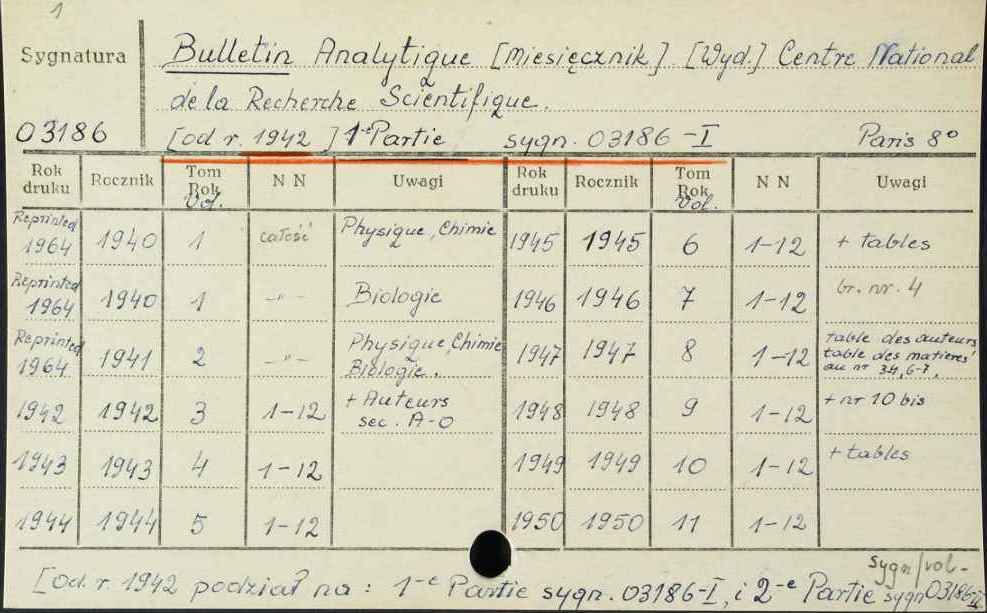 1
Sygnatura
Bulletin Analytique [Miesięcznik]. [Wyd.] Centre National
de la Recherche Scientifique.
03186 [od r. 1942] 1-e Partie sygn. 03186-I Paris 8°
Rok druku Rocznik Tom Rok Vol. NN Uwagi Rok druku Rocznik Tom Rok Vol. NN Uwagi
Reprinted 1964 1940 1 całość Physique, Chimie 1945 1945 6 1-12 + tables
Reprinted 1964 1940 1 -"- Biologie 1946 1946 7 1-12 br. nr. 4
Reprinted 1964 1941 2 -"- Physique, Chimie Biologie. 1947 1947 8 1-12 table des auteurs table des matieres au nr 34, 6-7.
1942 1942 3 1-12 + Auteurs sec. A-O 1948 1948 9 1-12 + nr 10 bis
1943 1943 4 1-12 1949 1949 10 1-12 + tables
1944 1944 5 1-12 1950 1950 11 1-12
sygn/vol-
[Od. r. 1942 podział na: 1-e Partie sygn. 03186-I, i 2-e Partie sygn 03186-II